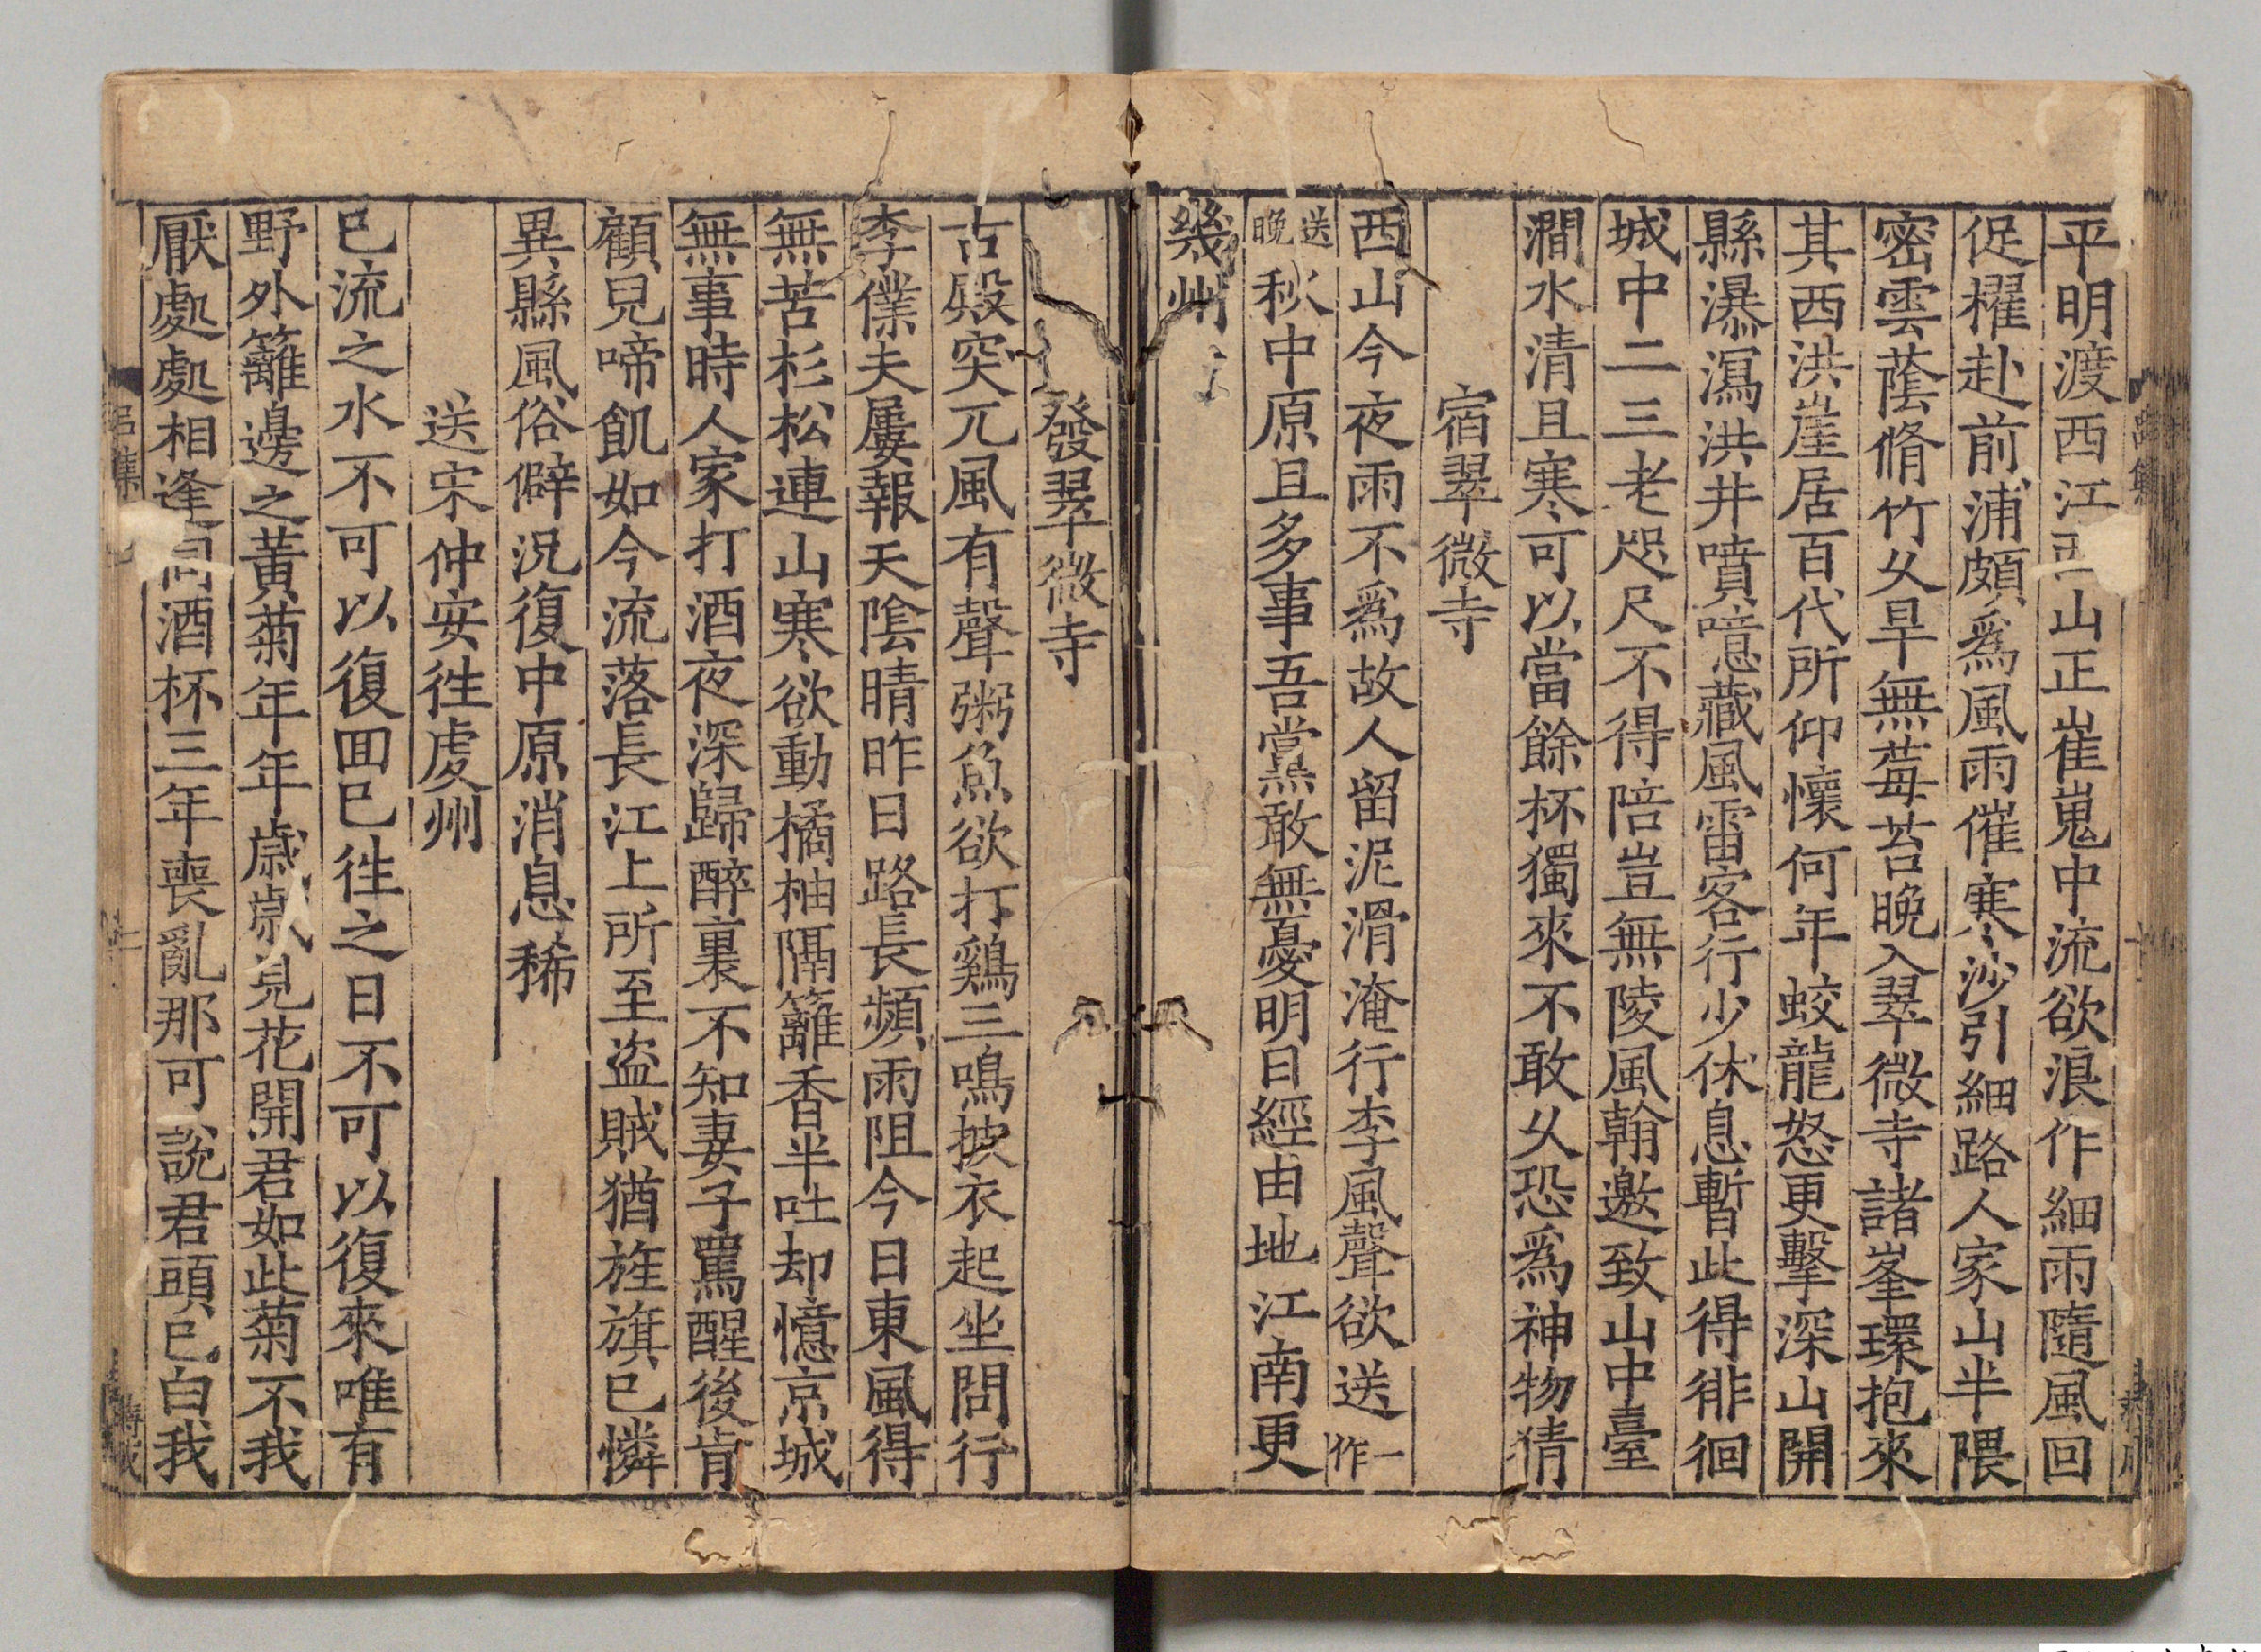 平明渡西江西山正崔嵬中流欲浪作細雨隨風回
促櫂赴前浦頗爲風雨催寒沙引細路人家山半隈
密雲蔭脩竹乆旱無莓苔晩入翠微寺諸峯環抱來
其西洪崖居百代所仰懷何年蛟龍怒更擊深山開
縣瀑瀉洪井噴噫藏風雷客行少休息暫此得徘徊
城中二三老咫尺不得陪豈無陵風翰邀致山中臺
澗水清且寒可以當餘杯獨來不敢乆恐爲神物猜
宿翠微寺
西山今夜雨不爲故人留泥滑淹行李風聲欲送一作
送晩秋中原且多事吾黨敢無憂明日經由地江南更
幾州
發翠微寺
古殿突兀風有聲粥魚欲打鷄三鳴披衣起坐問行
李僕夫屢報天陰晴昨日路長頻雨阻今日東風得
無苦杉松連山寒欲動橘柚隔籬香半吐却憶京城
無事時人家打酒夜深歸醉裏不知妻子罵醒後肯
顧兒啼飢如今流落長江上所至盗賊猶旌旗已憐
異縣風俗僻况復中原消息稀
送宋仲安徃虔州
已流之水不可以復回已徃之日不可以復來唯有
野外籬邊之黃菊年年歲歲見花開君如此菊不我
厭處處相逢同酒杯三年喪亂那可說君頭已白我